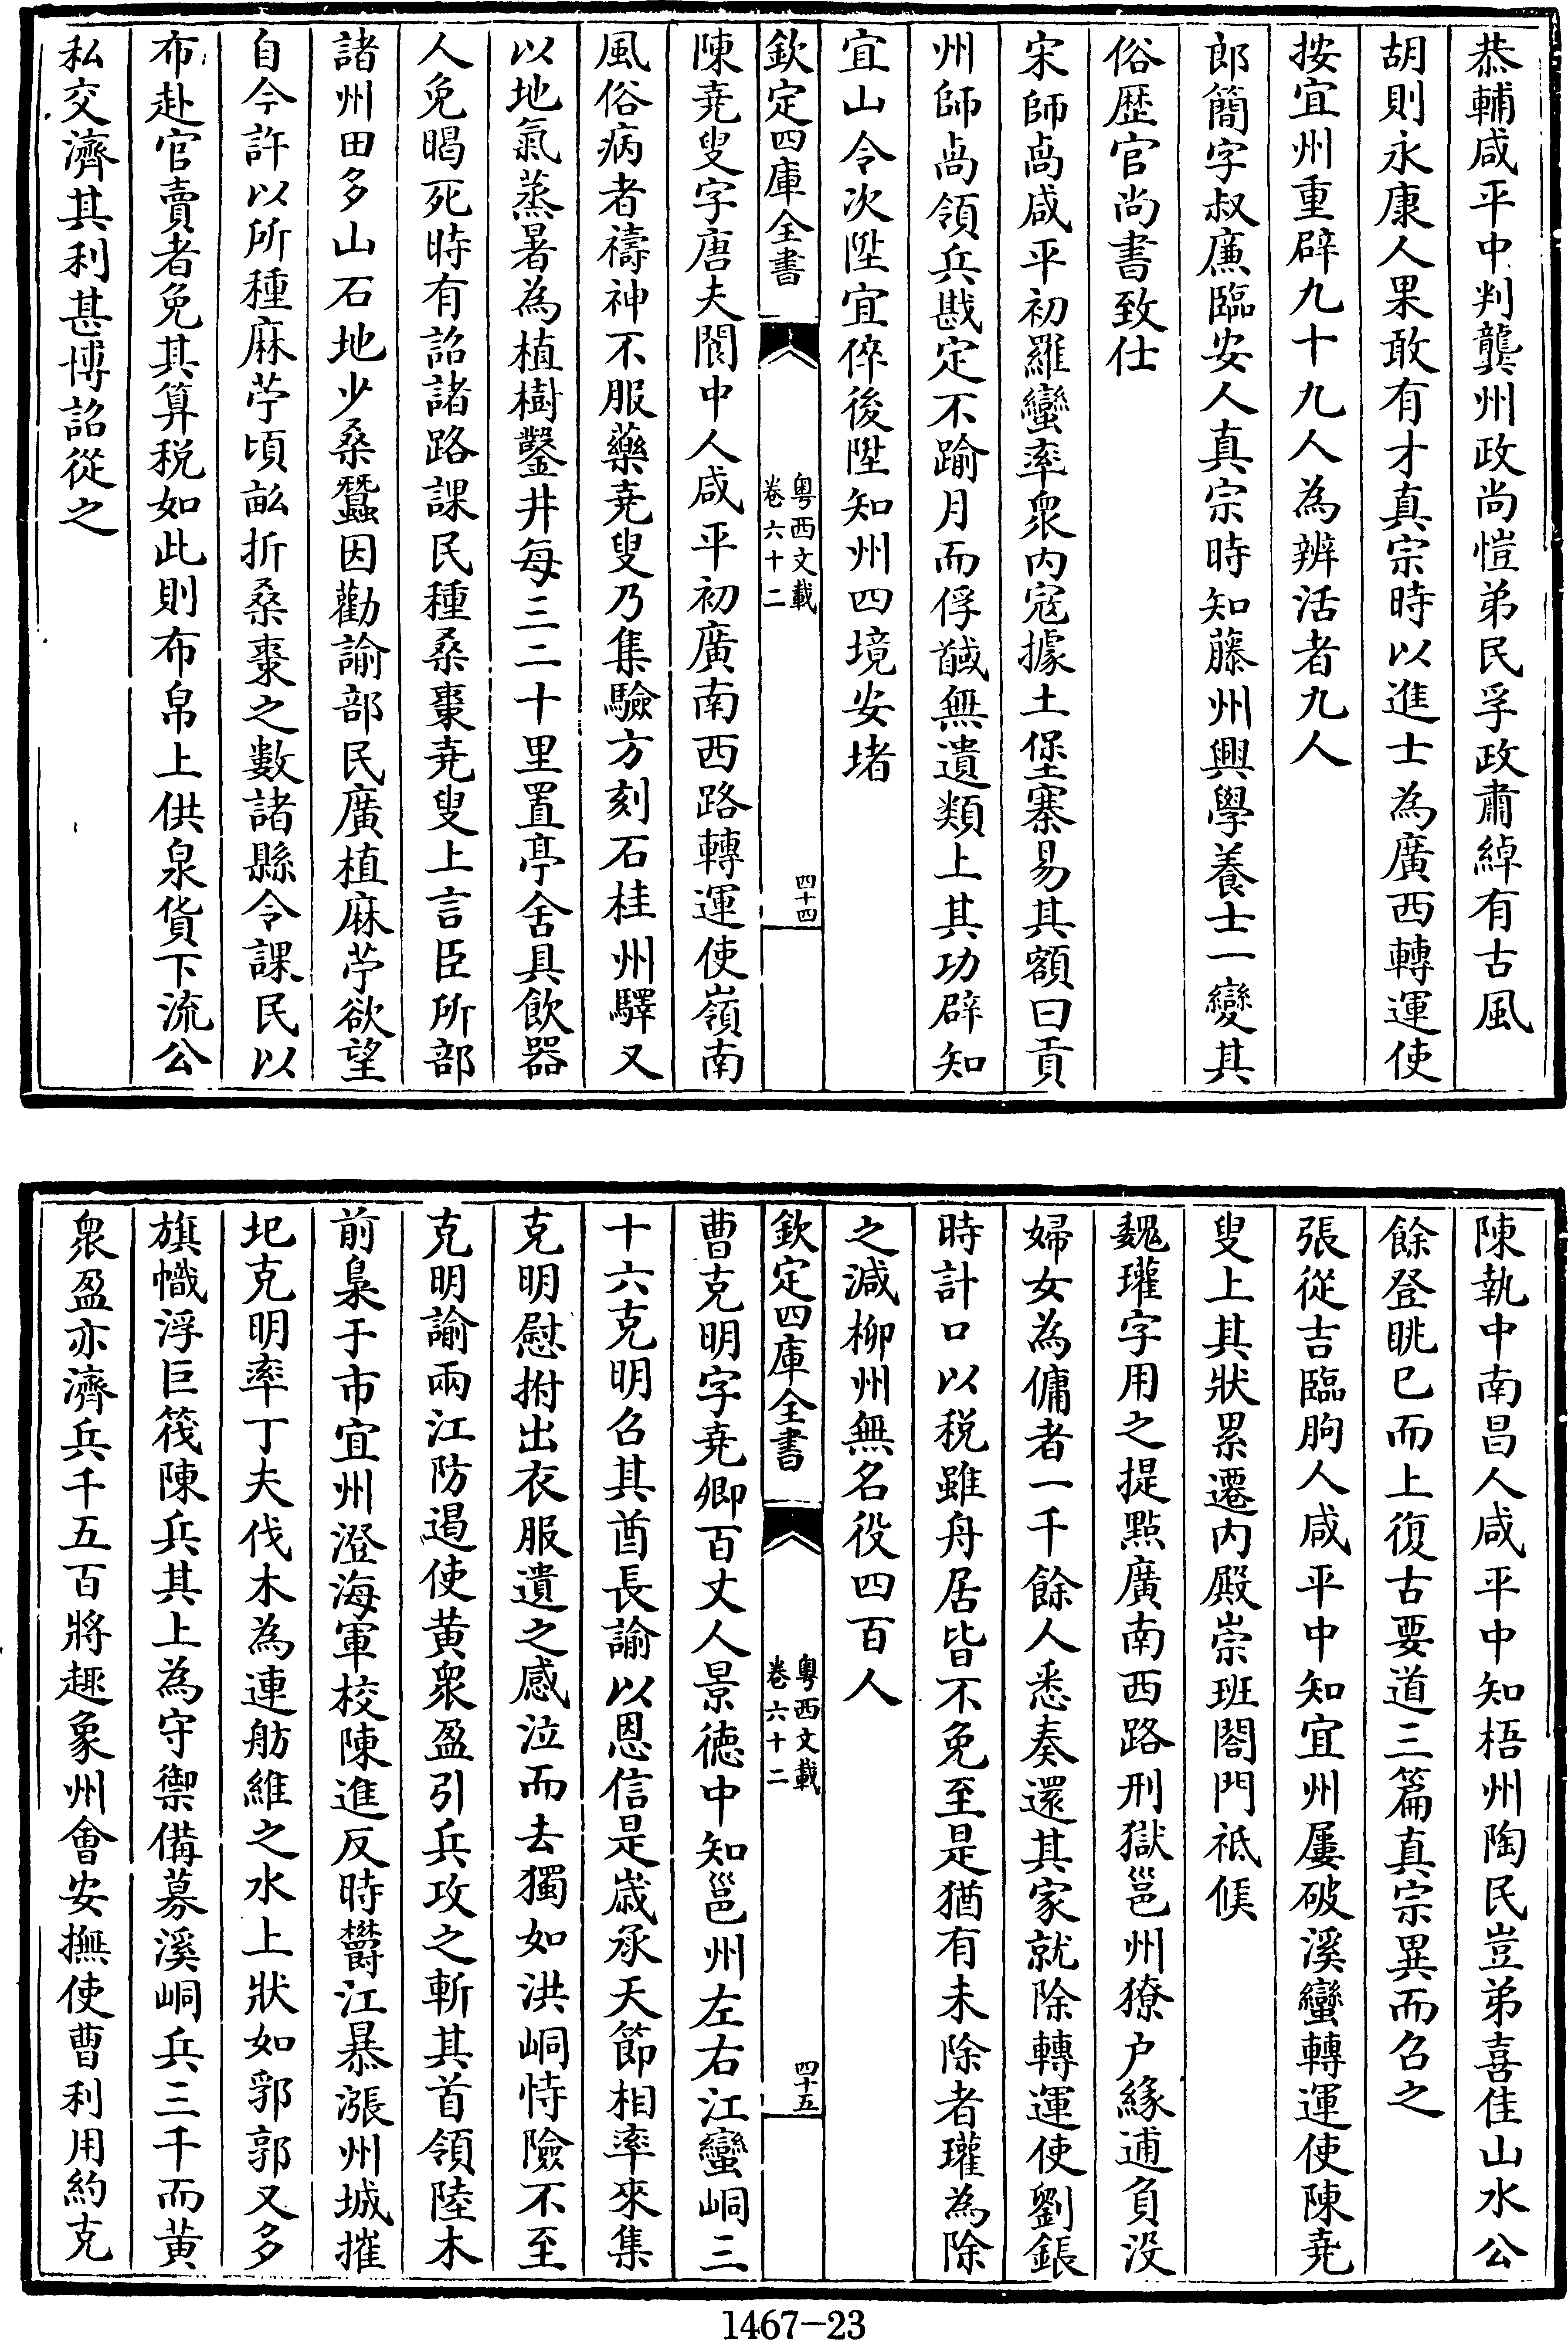 恭輔咸平中判龔州政尚愷弟民孚政肅綽有古風
胡則永康人果敢有才真宗時以進士為廣西轉運使
按宜州重辟九十九人為辨活者九人
郎簡字叔廉臨安人真宗時知藤州興學養士一變其
俗歴官尚書致仕
宋師卨咸平初羅蠻率衆内寇據土堡寨易其額曰貢
州師卨領兵戡定不踰月而俘馘無遺類上其功辟知
宜山令次陞宜倅後陞知州四境安堵
欽定四庫全書
粤西文載
卷六十二
四十四
陳堯叟字唐夫閬中人咸平初廣南西路轉運使嶺南
風俗病者禱神不服藥堯叟乃集驗方刻石桂州驛又
以地氣蒸暑為植樹鑿井每三二十里置亭舍具飲器
人免暍死時有詔諸路課民種桑棗堯叟上言臣所部
諸州田多山石地少桑蠶因勸諭部民廣植麻苧欲望
自今許以所種麻苧頃畝折桑棗之數諸縣令課民以
布赴官賣者免其算税如此則布帛上供泉貨下流公
私交濟其利甚博詔從之
陳執中南昌人咸平中知梧州陶民豈弟喜佳山水公
餘登眺已而上復古要道三篇真宗異而召之
張從吉臨朐人咸平中知宜州屢破溪蠻轉運使陳堯
叟上其狀累遷内殿崇班閤門祗候
魏瓘字用之提點廣南西路刑獄邕州獠户緣逋負沒
婦女為傭者一千餘人悉奏還其家就除轉運使劉鋹
時計口以税雖舟居皆不免至是猶有未除者瓘為除
之減柳州無名役四百人
欽定四庫全書
粤西文載
卷六十二
四十五
曹克明字堯卿百丈人景德中知邕州左右江蠻峒三
十六克明召其酋長諭以恩信是歳承天節相率來集
克明慰拊出衣服遺之感泣而去獨如洪峒恃險不至
克明諭兩江防遏使黄衆盈引兵攻之斬其首領陸木
前梟于市宜州澄海軍校陳進反時欝江暴漲州城摧
圮克明率丁夫伐木為連舫維之水上狀如郛郭又多
旗幟浮巨筏陳兵其上為守禦備募溪峒兵三千而黄
衆盈亦濟兵千五百將趣象州會安撫使曹利用約克
1467-23